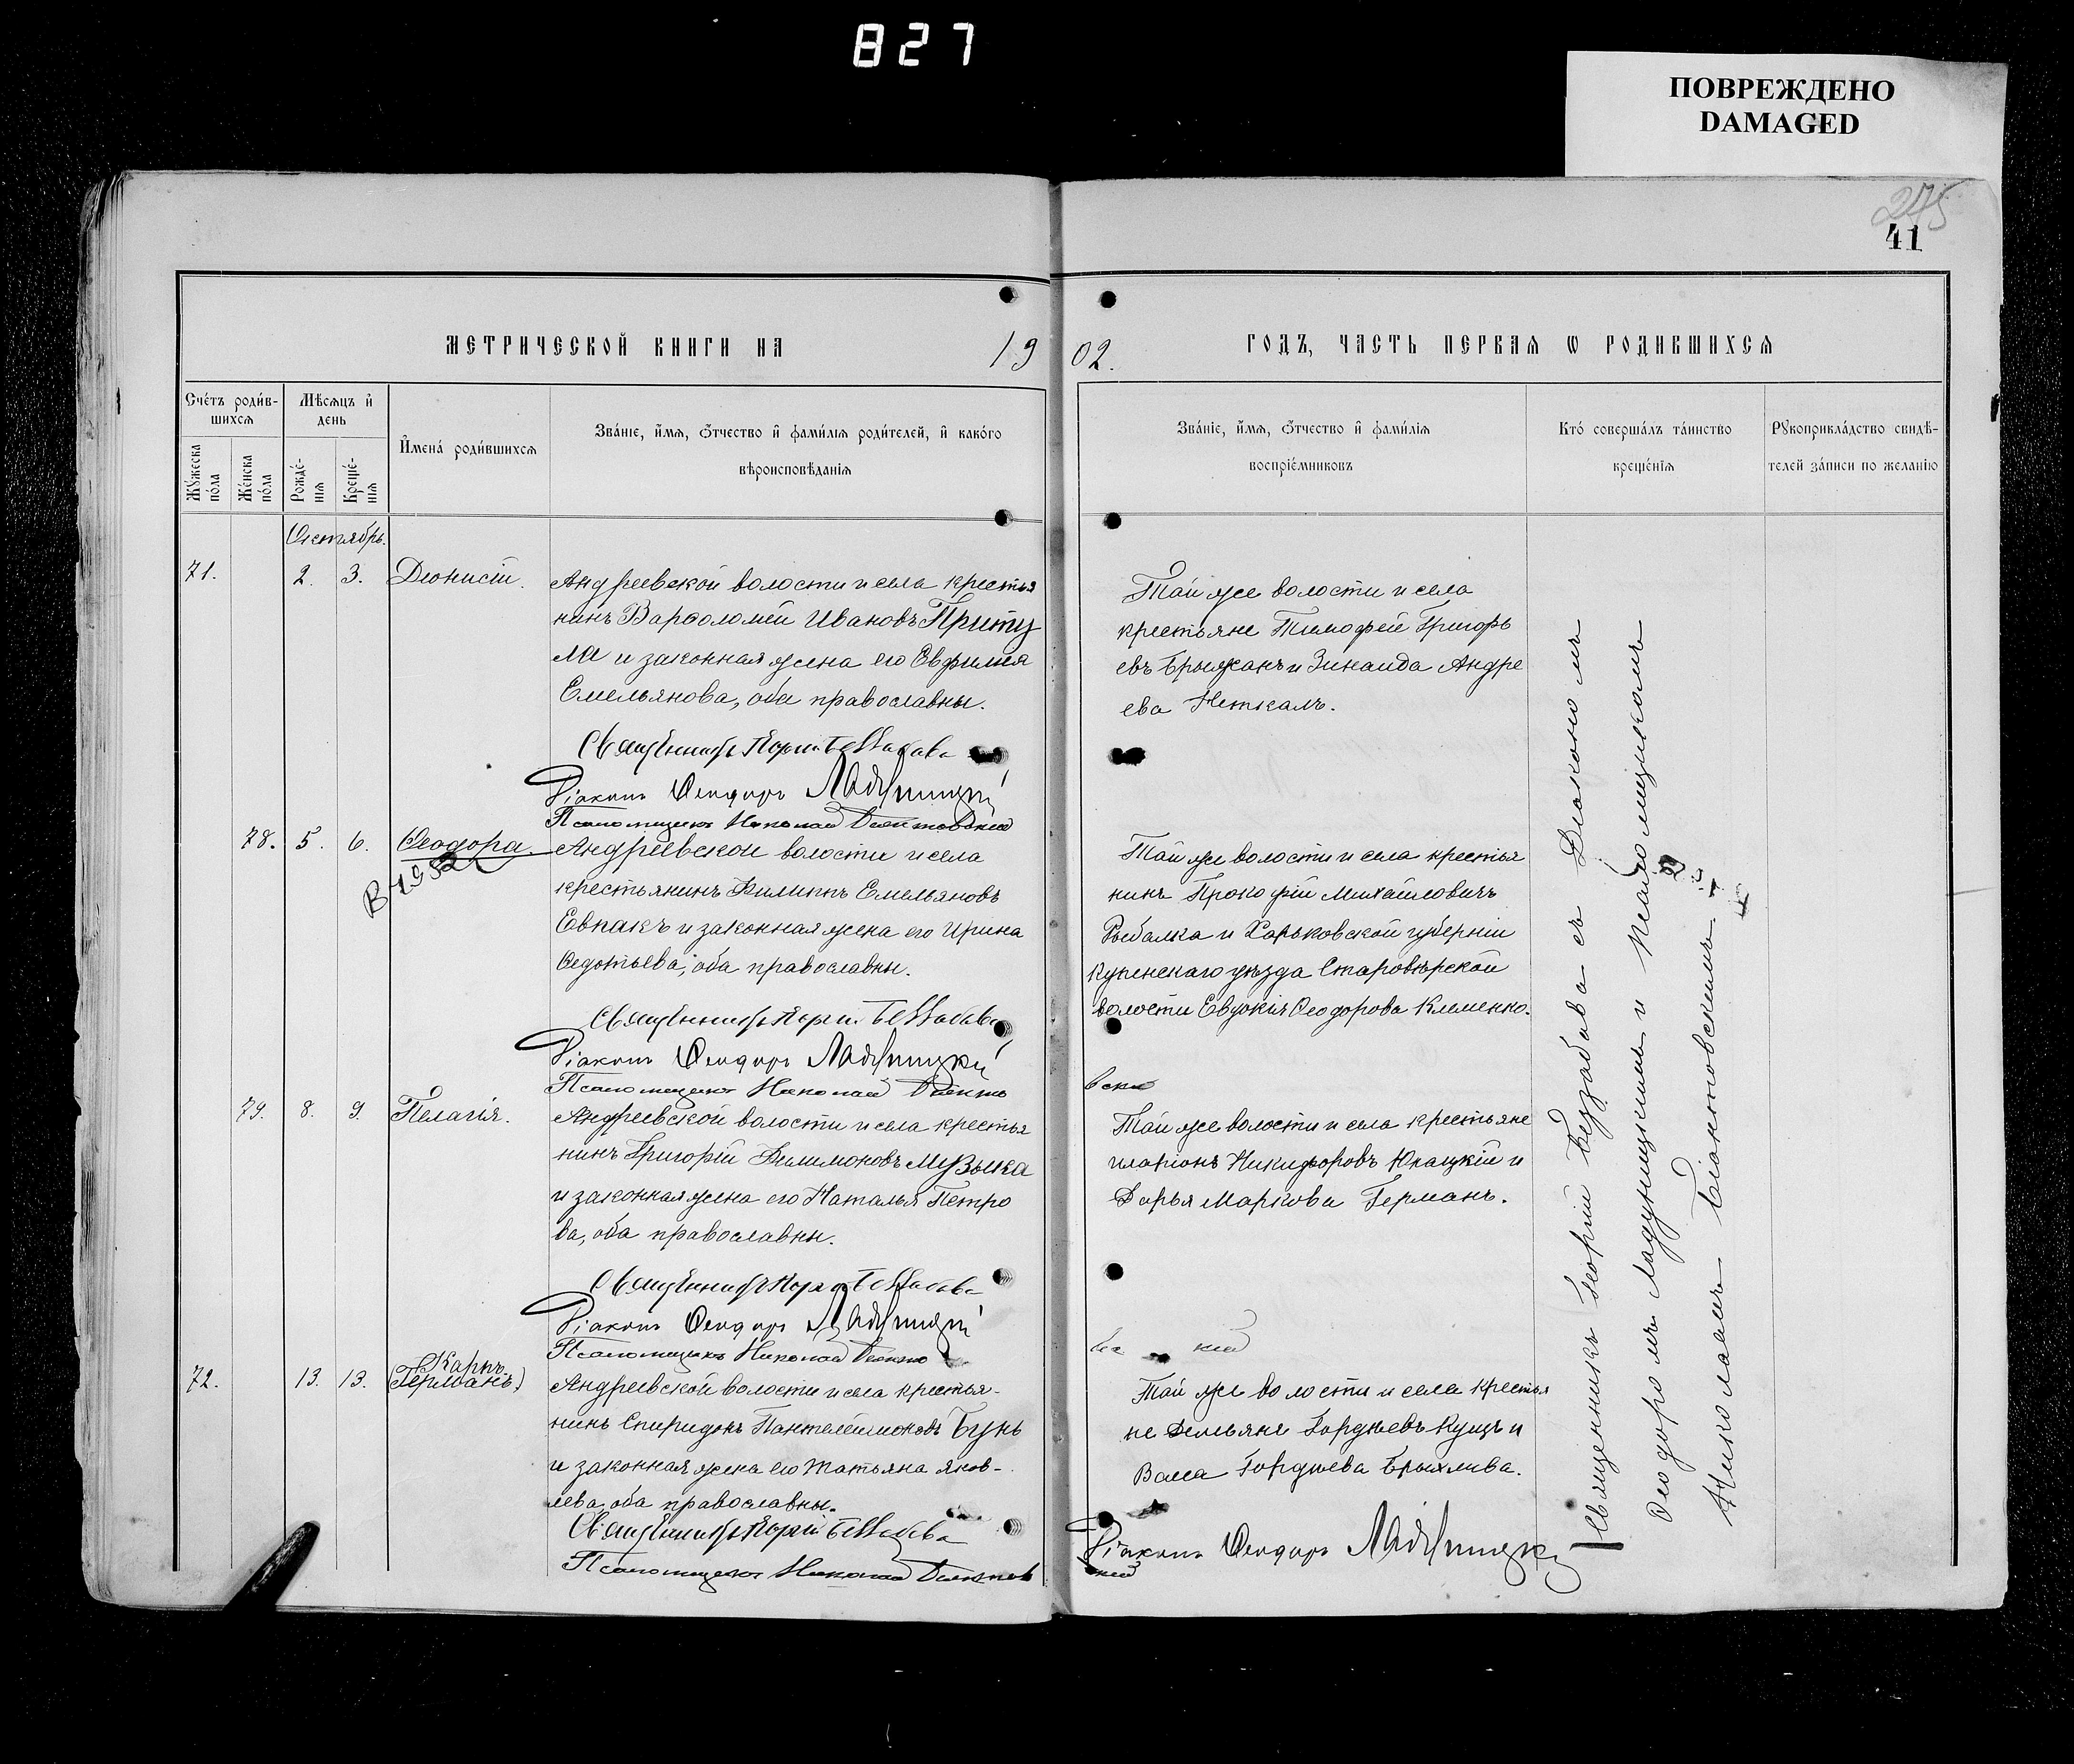 827
ПОВРЕЖДЕНО
DAMAGED
275
41
МЕТРИЧЕСКОЙ КНИГИ НА 1902. ГОДЪ, ЧАСТЬ ПЕРВАЯ Ѡ РОДИВШИХСЯ
Счетъ родившихся
Мѣсяцъ и день
Имена родившихся
Званіе, имя, отчество и фамилія родителей, и какого вѣроисповѣданія
Званіе, имя, отчество и фамилія воспріемниковъ
Кто совершалъ таинство крещенія
Рукоприкладство свидѣтелей записи по желанію
Мужеска пола
Женска пола
Рожденія
Крещенія
Октябрь.
71. 2. 3. Діонисій.
Андреевской волости и села крестья
нинъ Варѳоломей Ивановъ Приту
ла и законная жена его Евфимія
Емельянова, оба православны.
Священникъ Георгій Беззабава
Діаконъ Ѳеодоръ Ладушицкій
Псаломщикъ Николай Біантовскій
Той же волости и села
крестьяне Тимофей Григорь
евъ Брыжанъ и Зинаида Андре
ева Неткалъ.
78. 5. 6. Ѳеодора.
В 1952
Андреевской волости и села
крестьянинъ Филиппъ Емельяновъ
Евпакъ и законная жена его Ирина
Ѳедотьева, оба православны.
Священникъ Георгій Беззабава
Діаконъ Ѳеодоръ Ладушицкій
Псаломщикъ Николай Біанто
вскій
Той же волости и села крестья
нинъ Прокофій Михайловичъ
Рыбалка и Харьковской губерніи
Купенскаго уѣзда Старовѣрской
волости Евдокія Ѳеодорова Клименко.
79. 8. 9. Пелагія.
Андреевской волости и села крестья
нинъ Григорій Филимоновъ Музыка
и законная жена его Наталья Петро
ва, оба православны.
Священникъ Георгій Беззабава
Діаконъ Ѳеодоръ Ладушицкій
Псаломщикъ Николай Біанто
кій
Той же волости и села крестьяне
Иларіонъ Никифоровъ Юнацкій и
Дарья Маркова Германъ.
72. 13. 13. Карпъ
(Германъ)
Андреевской волости и села крестья-
нинъ Спиридонъ Пантелеимоновъ Бунь
и законная жена его Татьяна Яков-
лева, оба православны.
Священникъ Георгій Беззабава
Псаломщикъ Николай Біантов
скій
Той же волости и села крестья
не Демьянъ Гордѣевъ Куцъ и
Васса Гордѣева Брыхлива.
Діаконъ Ѳеодоръ Ладушицкій
Священникъ Георгій Беззабава съ Діакономъ
Ѳеодоромъ Ладушицкимъ и псаломщикомъ
Николаемъ Біантовскимъ.